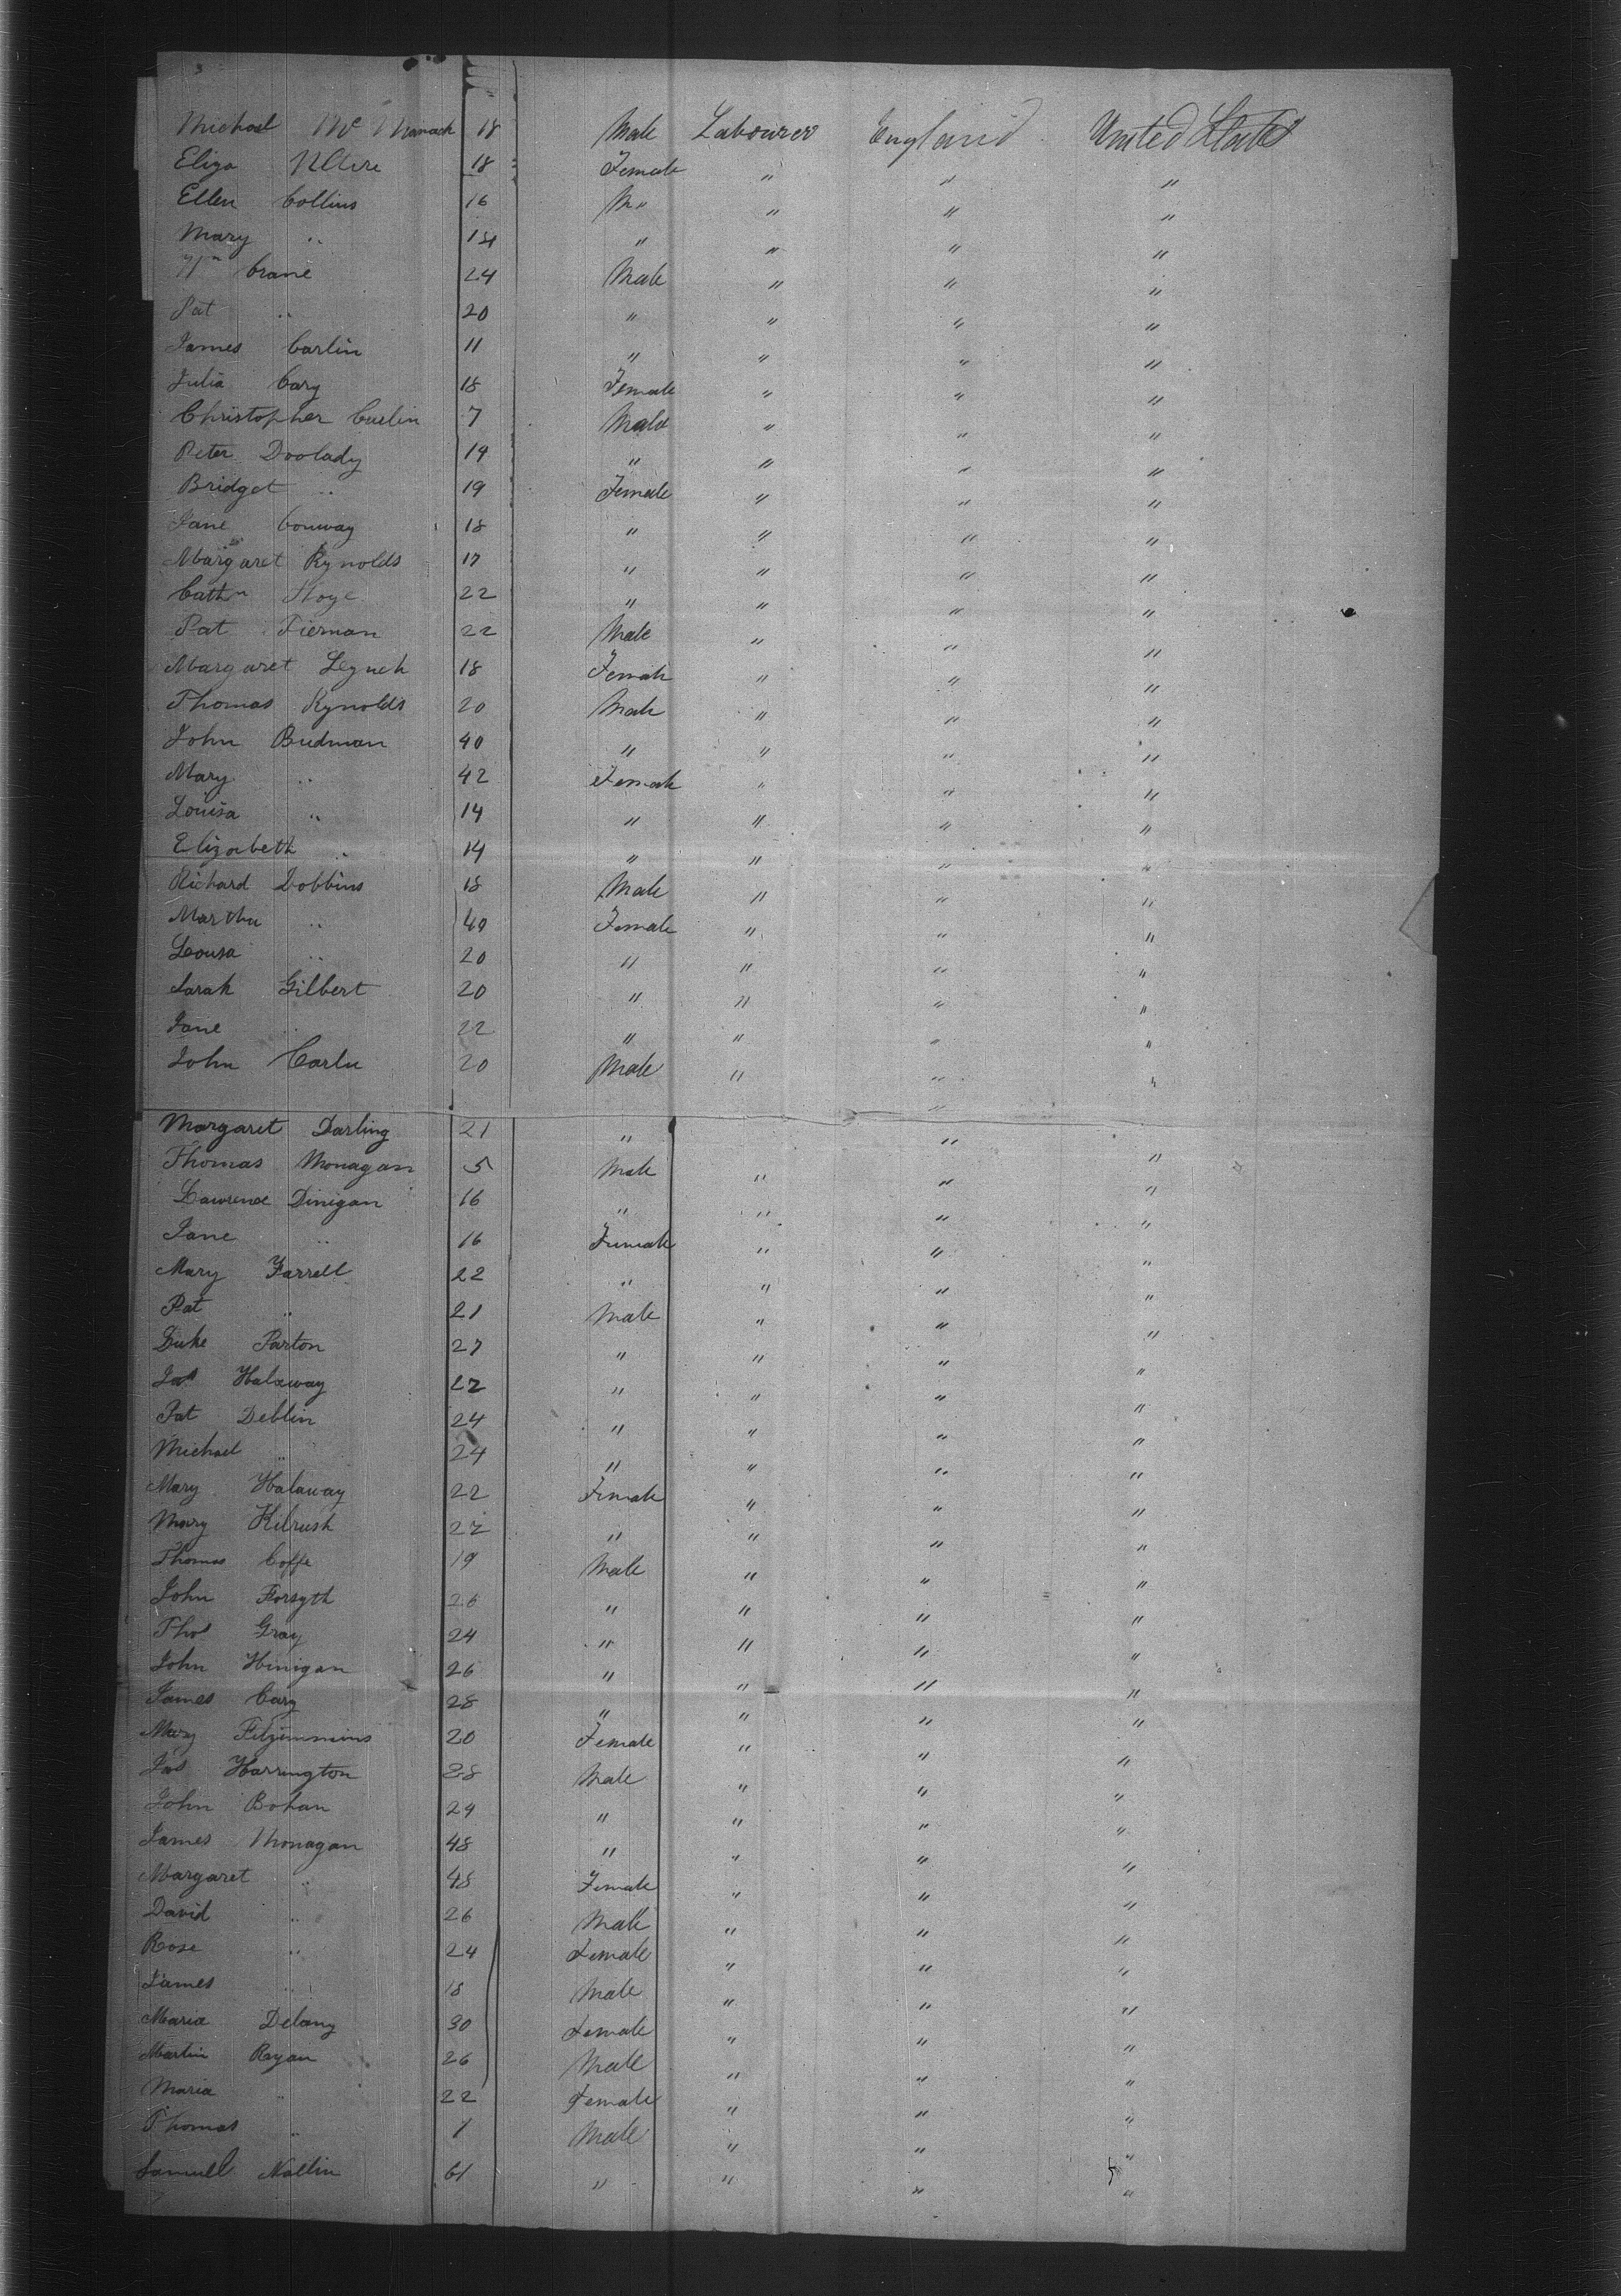 Michael Mc Manach 18 Male Labourer England United States
Eliza 18 Female " " "
Ellen Collins 16 " " "
Mary " 14 " " " "
Wm Crane 24 Male " " "
Pat " 20 " " " "
James Carlin 11 " " " "
Julia Cary 18 Female " " "
Christopher Carlin 7 Male " " "
Peter Doolady 19 " " " "
Bridget " 19 Female " " "
Jane Conway 18 " " " "
Margaret Rynolds 17 " " " "
Cathn Hoye 22 " " " "
Pat Tiernan 22 Male " " "
Margaret Lynch 18 Female " " "
Thomas Rynolds 20 Male " " "
John Budman 40 " " " "
Mary " 42 Female " " "
Louisa " 14 " " " "
Elizabeth " 14 " " " "
Richard Dobbins 18 Male " " "
Martha " 40 Female " " "
Lousa " 20 " " " "
Sarah Gilbert 20 " " " "
Jane " 22 " " " "
John 20 Male " " "
Margaret Darling 21 " " "
Thomas Monagan 5 Male " " "
Lawrence Dinigan 16 " " " "
Jane " 16 Female " " "
Mary Farrell 22 " " " "
Pat " 21 Male " " "
Luke Parton 27 " " " "
Jas Halaway 22 " " " "
Pat Deblin 24 " " " "
Michael " 24 " " " "
Mary Halaway 22 Female " " "
Mary Kilrush 22 " " " "
Thomas Coffe 19 Male " " "
John Forsyth 26 " " " "
Thos Gray 24 " " " "
John Hinigan 26 " " " "
James Cary 28 " " " "
Mary Fitzimmins 20 Female " " "
Jas Harrington 28 Male " " "
John Bohan 24 " " " "
James Monagan 48 " " " "
Margaret " 48 Female " " "
David " 26 Male " " "
Rose " 24 Female " " "
James " 18 Male " " "
Maria Delany 30 Female " " "
Martin Ryan 26 Male " " "
Maria " 22 Female " " "
Thomas " 1 Male " " "
Samuel Nallin 61 " " " "